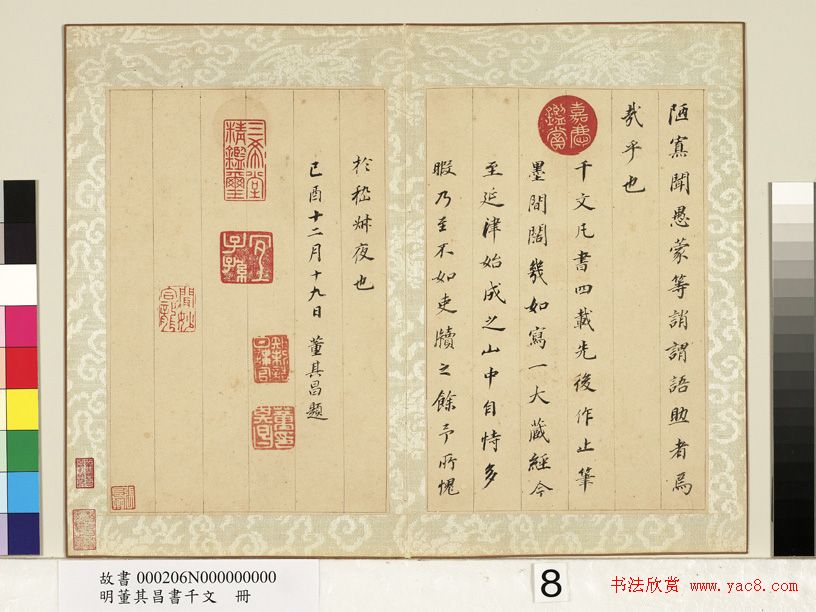 陋寡聞愚蒙等誚謂語助者焉
哉乎也
千文凡書四載先後作止筆
墨間闊幾如寫一大藏經今
至延津始成之山中自恃多
暇乃至不如吏牘之餘予所愧
於嵇
夜也
己酉十二月十九日 董其昌題
嘉慶鑑賞
三希堂精鑑璽
宜子孫
故書 000206N000000000
明董其昌書千文 冊
8
书法欣赏 www.yac8.com